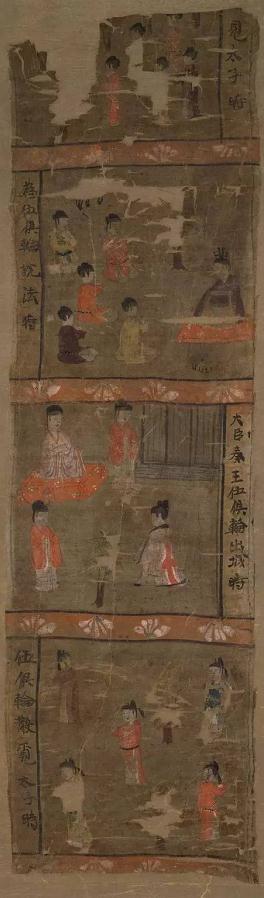 覓太子時
為伍俱輪說法時
大臣奏王伍俱輪出城時
伍俱輪散覓太子時